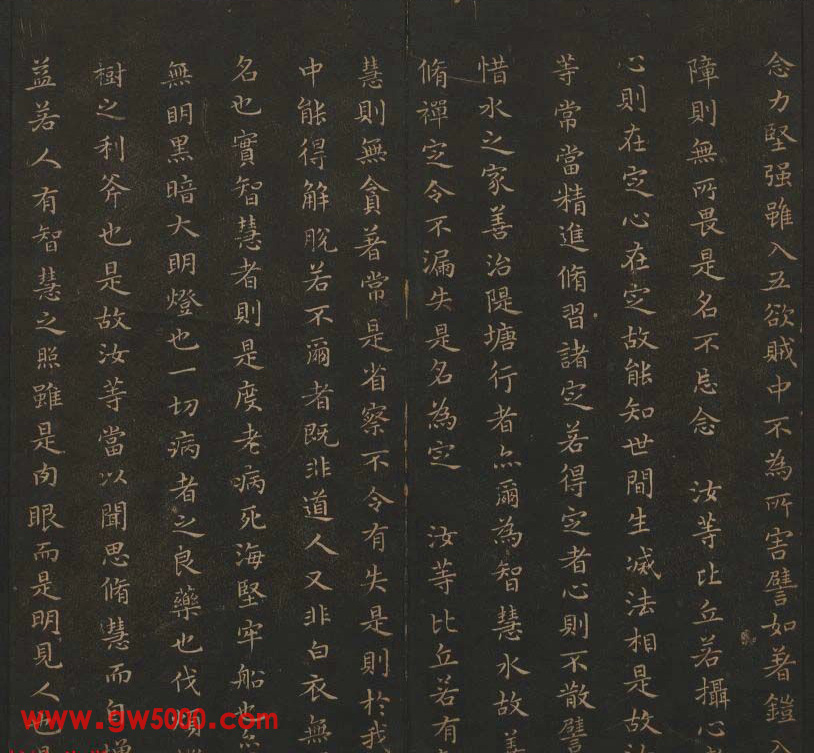 念力堅强雖入五欲賊中不為所害譬如著鎧入
障則無所畏是名不忘念 汝等比丘若攝心
心則在定心在定故能知世間生滅法相是故
等常當精進脩習諸定若得定者心則不散譬
惜水之家善治隄塘行者亦爾為智慧水故善
脩禪定令不漏失是名為定 汝等比丘若有
慧則無貪著常自省察不令有失是則於我
中能得解脫若不爾者既非道人又非白衣無
名也實智慧者則是度老病死海堅牢船也亦
無明黑暗大明燈也一切病者之良藥也伐煩
樹之利斧也是故汝等當以聞思脩慧而自增
益若人有智慧之照雖是肉眼而是明見人也是
www.gw5000.com